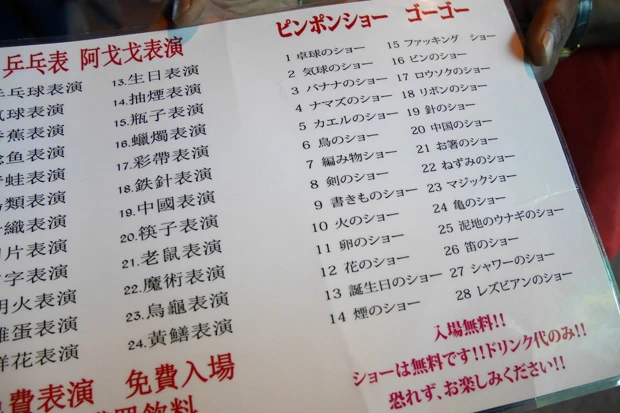 乒乓表 阿戈戈表演
乒乓球表演
氣球表演
香蕉表演
鯰鱼表演
青蛙表演
鳥類表演
織表演
刀片表演
字表演
明火表演
雞蛋表演
鮮花表演
13.生日表演
14.抽煙表演
15.瓶子表演
16.蠟燭表演
17.彩帶表演
18.鉄針表演
19.中國表演
20.筷子表演
21.老鼠表演
22.魔術表演
23.烏龜表演
24.黃鱔表演
免費表演 免費入場
飲料
ピンポンショー ゴーゴー
1 卓球のショー
2 気球のショー
3 バナナのショー
4 ナマズのショー
5 カエルのショー
6 鳥のショー
7 編み物ショー
8 剣のショー
9 書きものショー
10 火のショー
11 卵のショー
12 花のショー
13 誕生日のショー
14 煙のショー
15 ファッキング ショー
16 ビンのショー
17 ロウソクのショー
18 リボンのショー
19 針のショー
20 中国のショー
21 お箸のショー
22 ねずみのショー
23 マジックショー
24 亀のショー
25 泥地のウナギのショー
26 笛のショー
27 シャワーのショー
28 レズビアンのショー
入場無料!!
ショーは無料です!!ドリンク代のみ!!
恐れず、お楽しみください!!